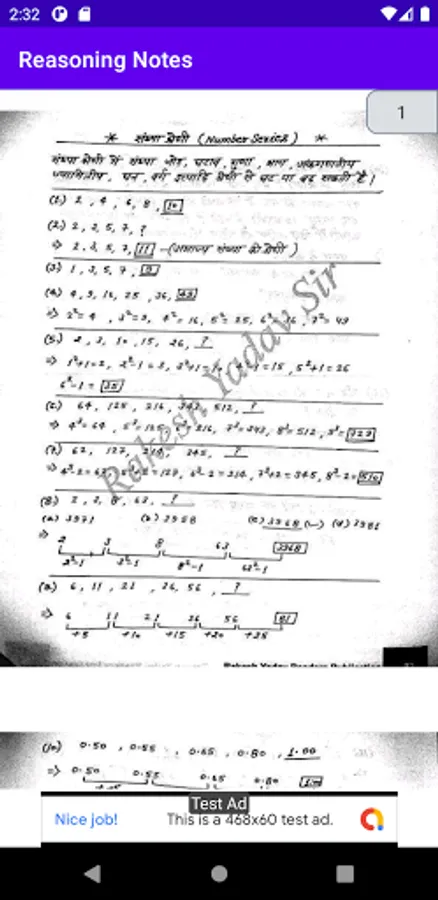 2:32
Reasoning Notes
1
* संख्या श्रेणी (Number Series) *
संख्या श्रेणी में संख्या जोड़, घटाव, गुणा, भाग, अंकगणतीय
ज्यामितीय, घन, वर्ग इत्यादि श्रेणी से घट या बढ़ सकती है।
(1) 2, 4, 6, 8, 10
(2) 2, 3, 5, 7, ?
⇒ 2, 3, 5, 7, 11 - (अभाज्य संख्या की श्रेणी)
(3) 1, 3, 5, 7, 9
(4) 4, 9, 16, 25, 36, 49
⇒ 2²= 4, 3²=9, 4²= 16, 5²= 25, 6²=36, 7²= 49
(5) 2, 3, 10, 15, 26, ?
⇒ 1²+1=2, 2²-1=3, 3²+1=1 -1=15, 5²+1=26
6²-1= 35
(6) 64, 125, 216, 343, 512, ?
⇒ 4³=64, 5³=125, 6³=216, 7³=343, 8³=512, 9³= 729
(7) 62, 127, 214, 345, ?
⇒ 4³-2=62, 5³+2=127, 6³-2=214, 7³+2=345, 8³-2= 510
(8) 2, 3, 8, 63, ?
(a) 3971 (b) 3958 (c) 3968 (d) 3981
⇒ 2 3 8 63 3968
2²-1 3²-1 8²-1 63²-1
(9) 6, 11, 21, 36, 56, ?
⇒ 6 11 21 36 56 81
+5 +10 +15 +20 +25
Rakesh Yadav Sir
Rakesh Yadav Readers Publication
(10) 0.50, 0.55, 0.65, 0.80, 1.00
⇒ 0.50 0.55 0.65 0.80 1.00
Test Ad
Nice job! This is a 468x60 test ad.